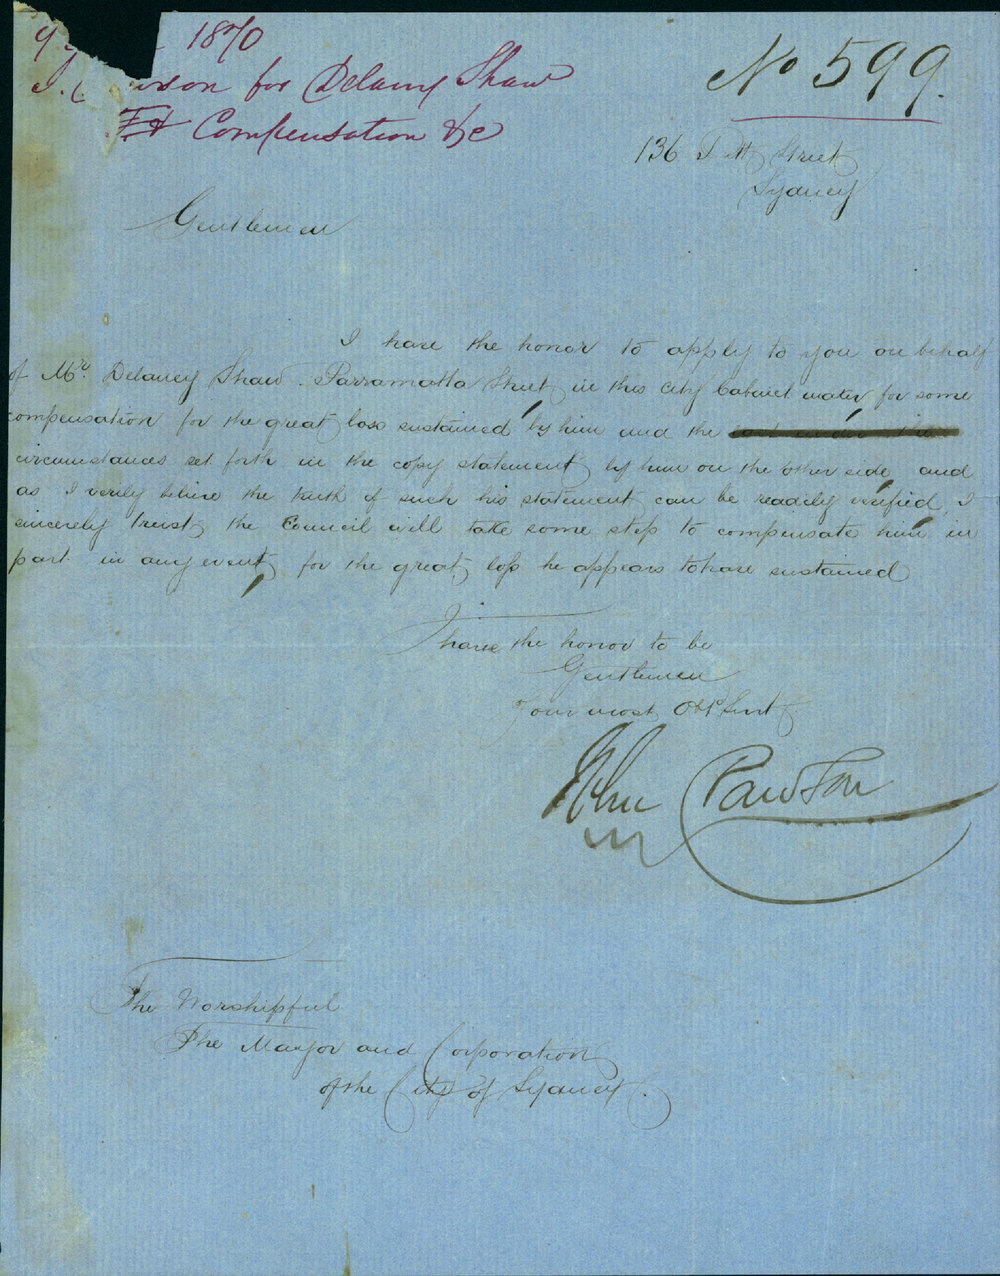 1870
for Delany Shaw
Compensation &c
No 599.
136 Pitt Street
Sydney
Gentlemen
I have the honor to apply to you on behalf
of Mr. Delaney Shaw. Parramatta Street in this City Cabinet maker for some
compensation for the great loss sustained by him and the
circumstances set forth in the copy statement by him on the other side, and
as I verily believe the truth of such his statement can be readily verified, I
sincerely trust the Council will take some step to compensate him in
part in any event, for the great loss he appears to have sustained
I have the honor to be
Gentlemen
Your most Obt Servt
John
The Worshipful
The Mayor and Corporation
of the City of Sydney.